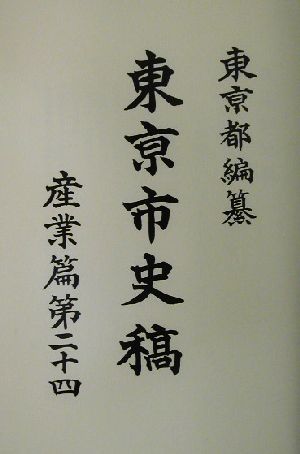 東亰都編纂
東亰市史稿
産業篇第二十四